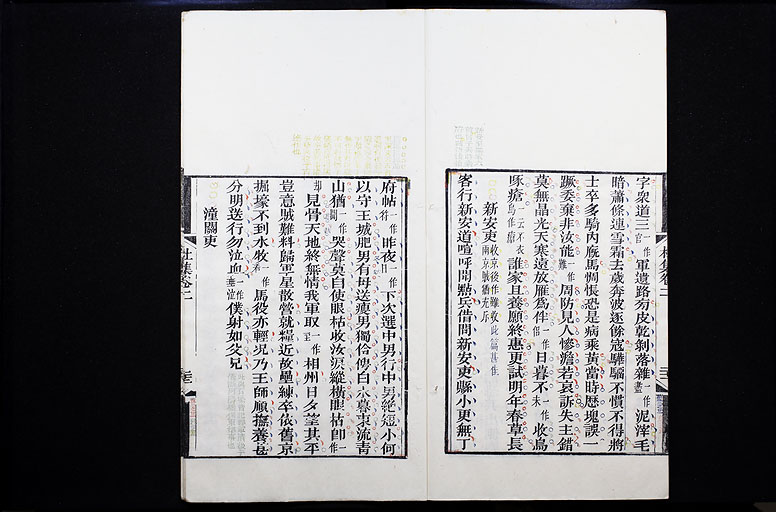 字衆道三官一作軍遺路旁皮乾剝落雜一作盡泥滓毛
暗蕭條連雪霜去歲奔波逐餘寇驊騮不慣不得將
士卒多騎內廐馬惆悵恐是病乘黃當時歷塊誤一
蹶委棄非汝能一作難周防見人慘澹若哀訴失主錯
莫無晶光天寒遠放雁爲伴一作日暮不一作未收烏
啄瘡一云不衣烏作瘡誰家且養願終惠更試明年春草長
新安吏收京後作雖收兩京賊猶充斥
客行新安道喧呼聞點兵借問新安吏縣小更無丁
府帖一作符昨夜一作日下次選中男行中男絕短小何
以守王城肥男有母送瘦男獨伶俜白水暮東流青
山猶一作聞哭聲莫自使眼枯收汝淚縱橫眼枯卽一作
却見骨天地終無情我軍取一作至相州日夕望其平
豈意賊難料歸軍星散營就糧近故壘練卒依舊京
掘壕不到水牧一作看馬役亦輕况乃王師順撫養甚
分明送行勿泣血一作垂泣僕射如父兄
潼關吏
杜集卷二
杜集卷二